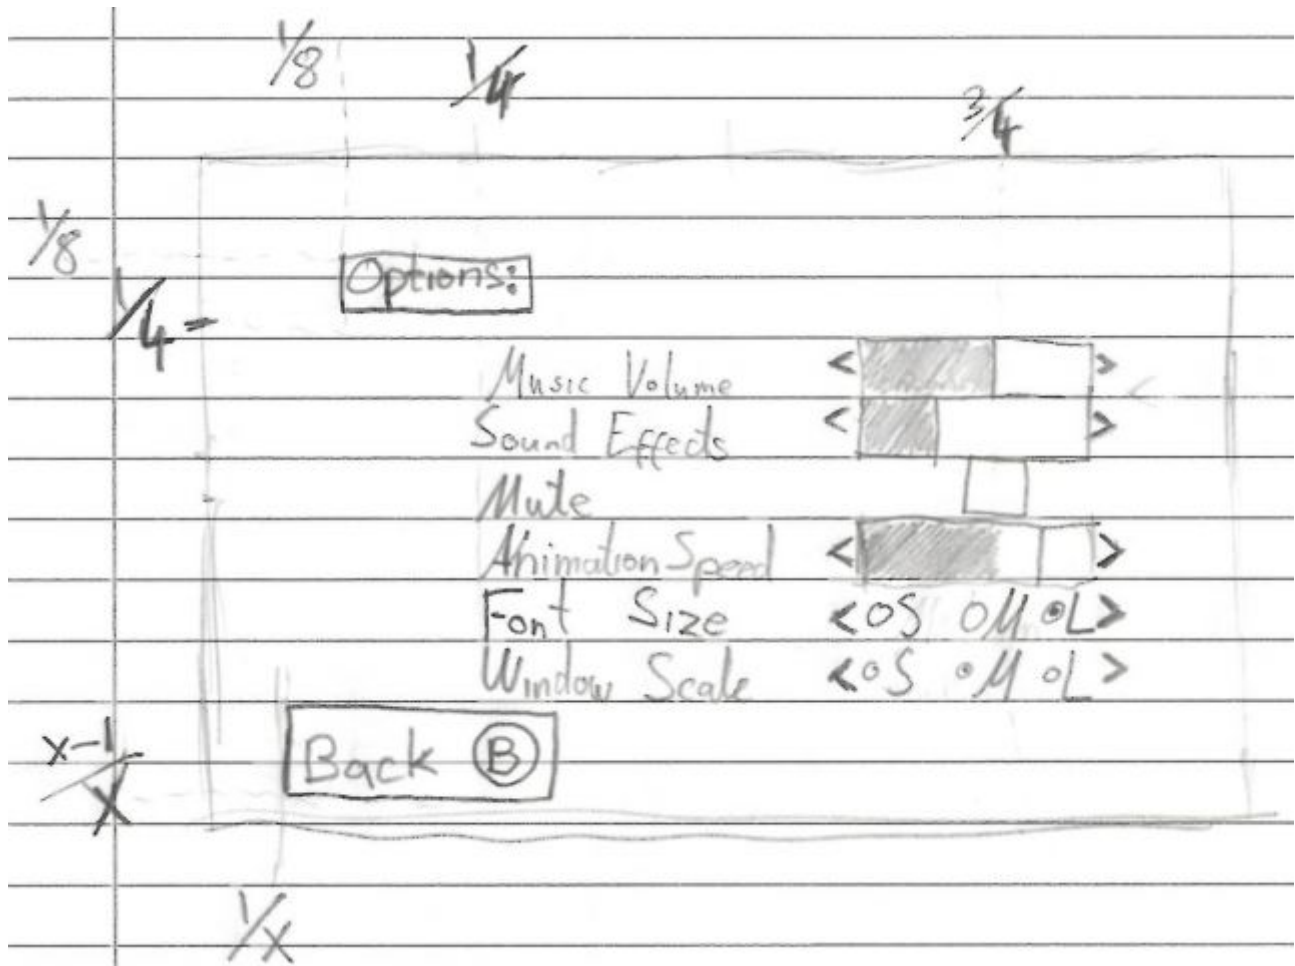 1/8 1/4 3/4
1/8
Options:
1/4 =
Music Volume < >
Sound Effects < >
Mute
Animation Speed < >
Font Size <OS OM OL>
Window Scale <OS OM OL>
Back B
x-1/x
1/x